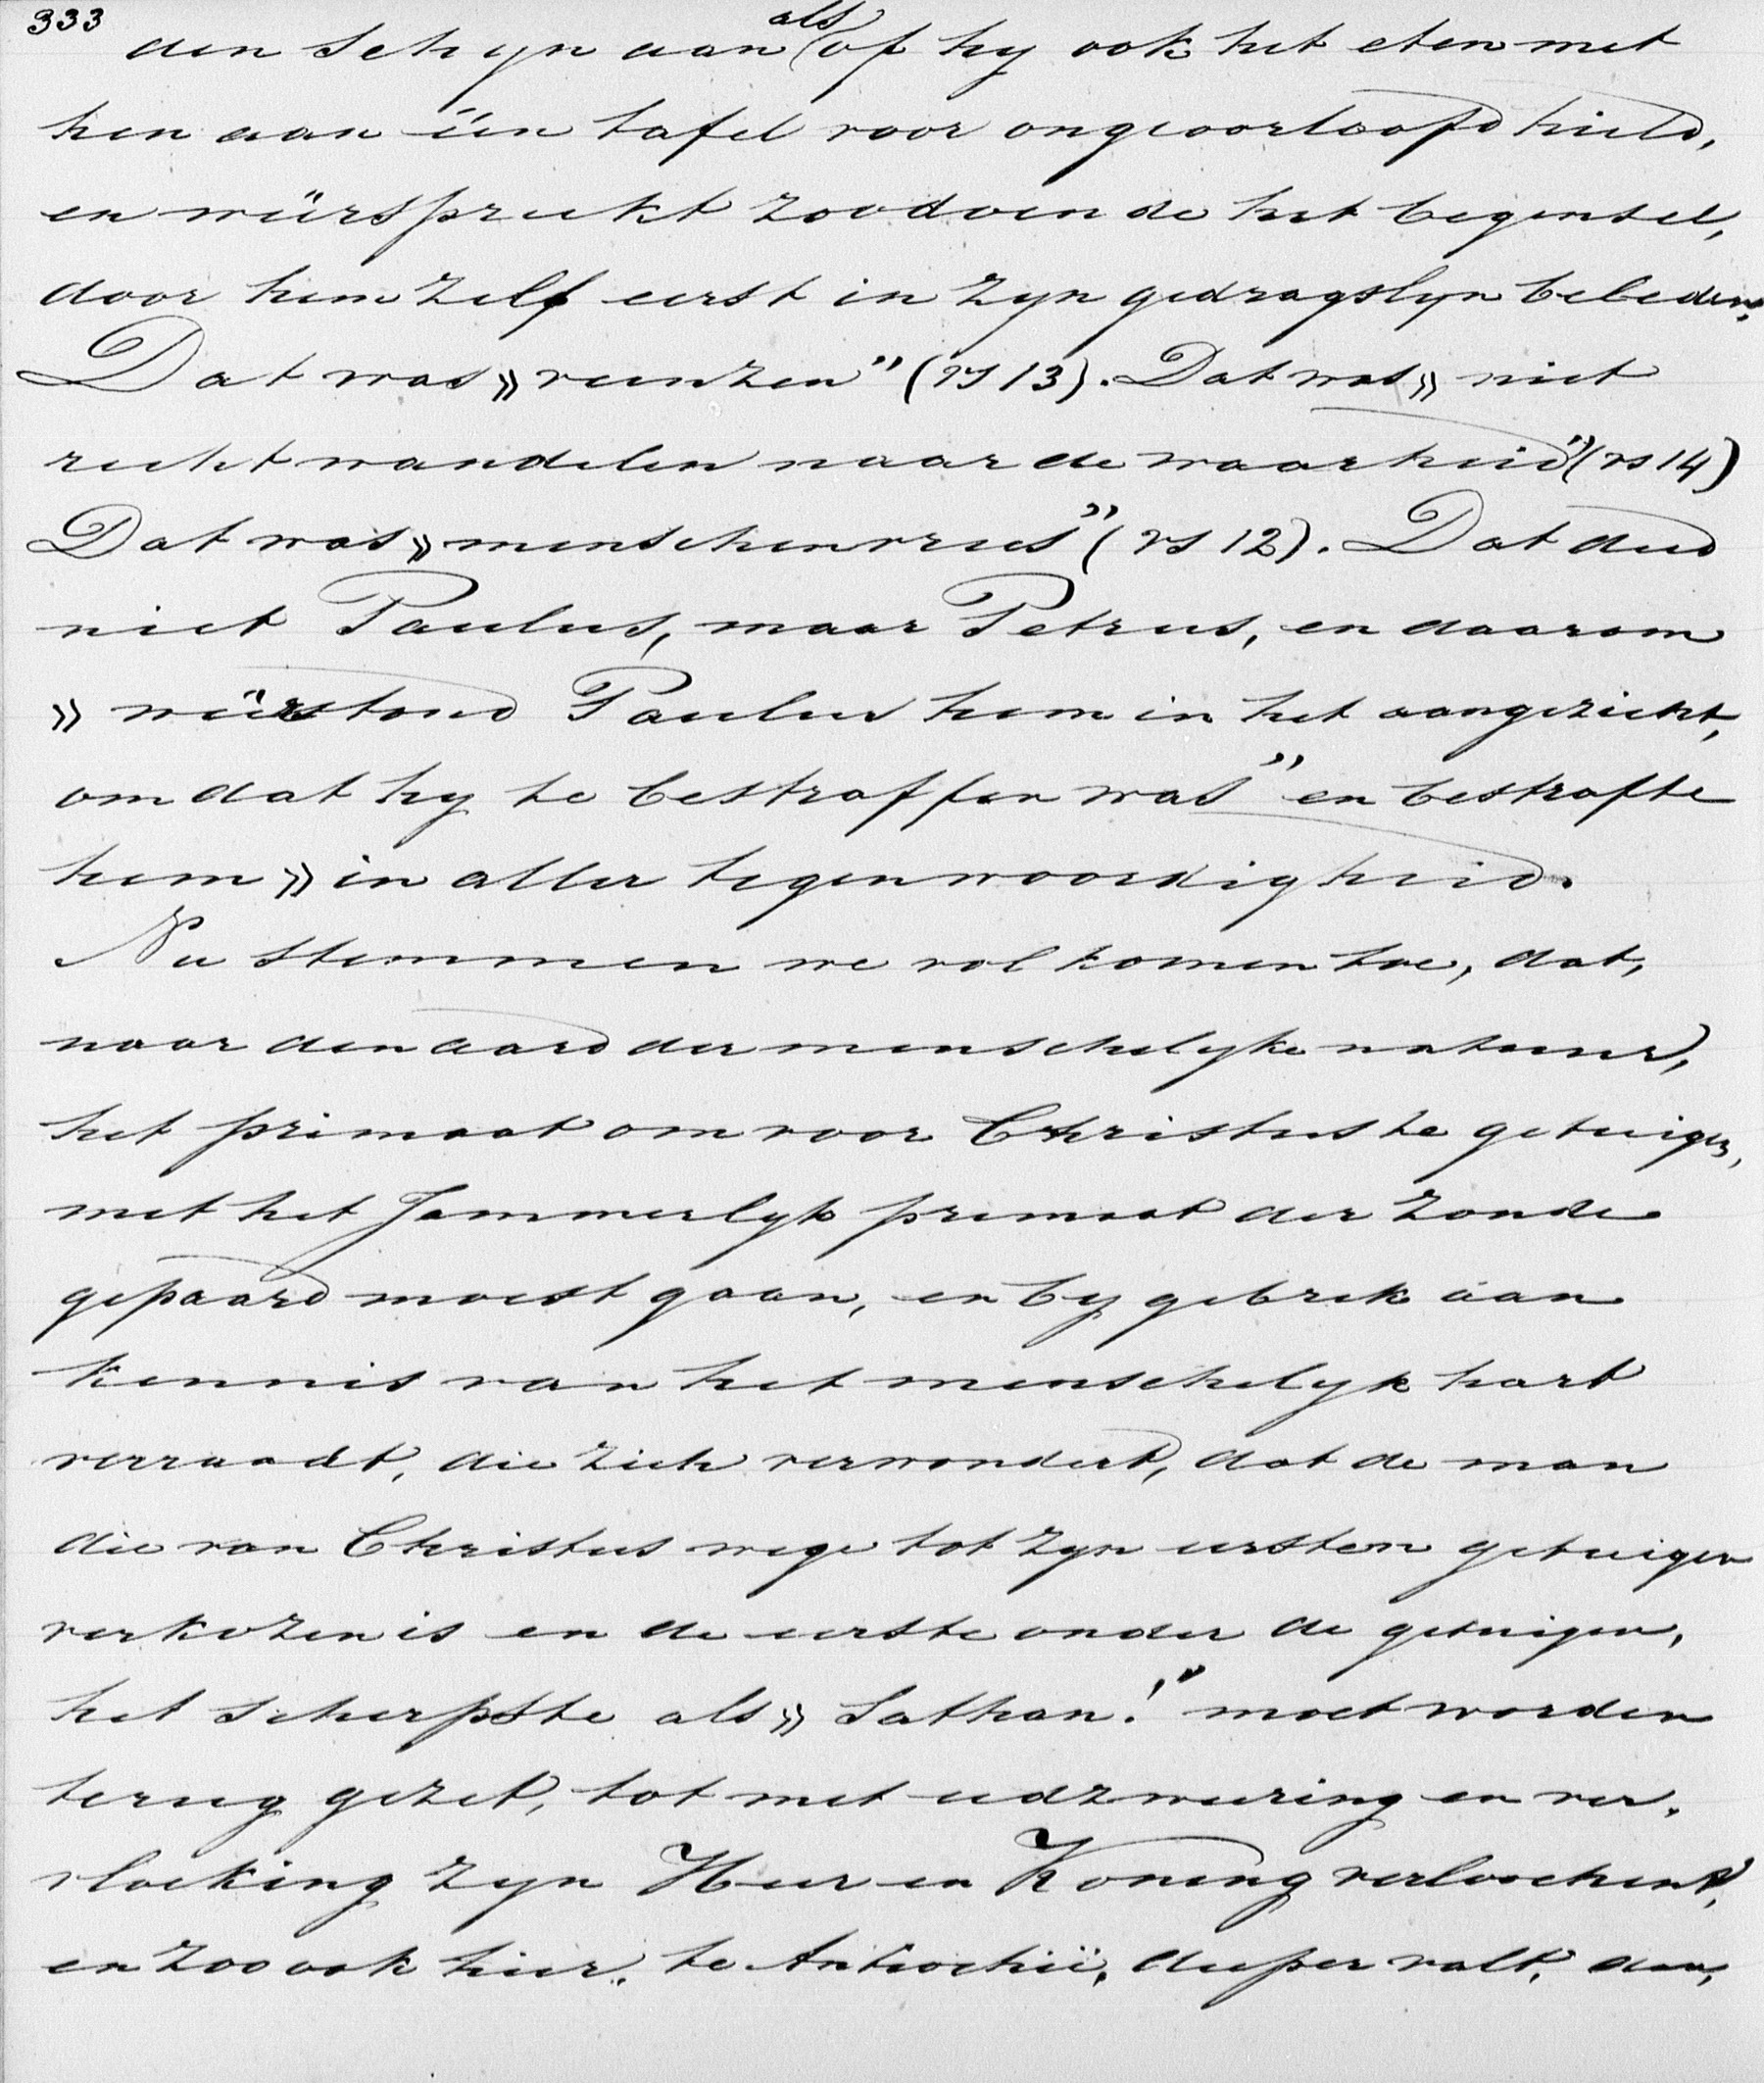 333
den schyn aan als of hy ook het eten met
hen aan één tafel voor ongeoorloofd hield,
en weêrspreekt zoodoende het beginsel,
door hem zelf eerst in zyn gedragslyn beleden.
Dat was „veinzen” (vs 13). Dat was „niet
recht wandelen naar de waarheid” (vs 14)
Dat was „menschenvrees” (vs 12). Dat deed
niet Paulus, maar Petrus, en daarom
„weêrstond Paulus hem in het aangezicht,
omdat hy te bestraffen was” en bestrafte
hem „in aller tegenwoordigheid.
Nu stemmen we volkomen toe, dat,
naar den aard der menschelyke natuur,
het primaat om voor Christus te getuigen,
met het Jammerlyk primaat der zonde
gepaard moest gaan, en by gebrek aan
kennis van het menschelyk hart
verraadt, die zich verwondert, dat de man
die van Christus wege tot zyn eersten getuigen
verkozen is en de eerste onder de getuigen,
het scherpste als „Sathan!” moet worden
terug gezet, tot met eedzweering en ver-
vloeking zyn Heer en Koning verloochent,
en zoo ook hier, te Antiochië, dieper valt, dan,